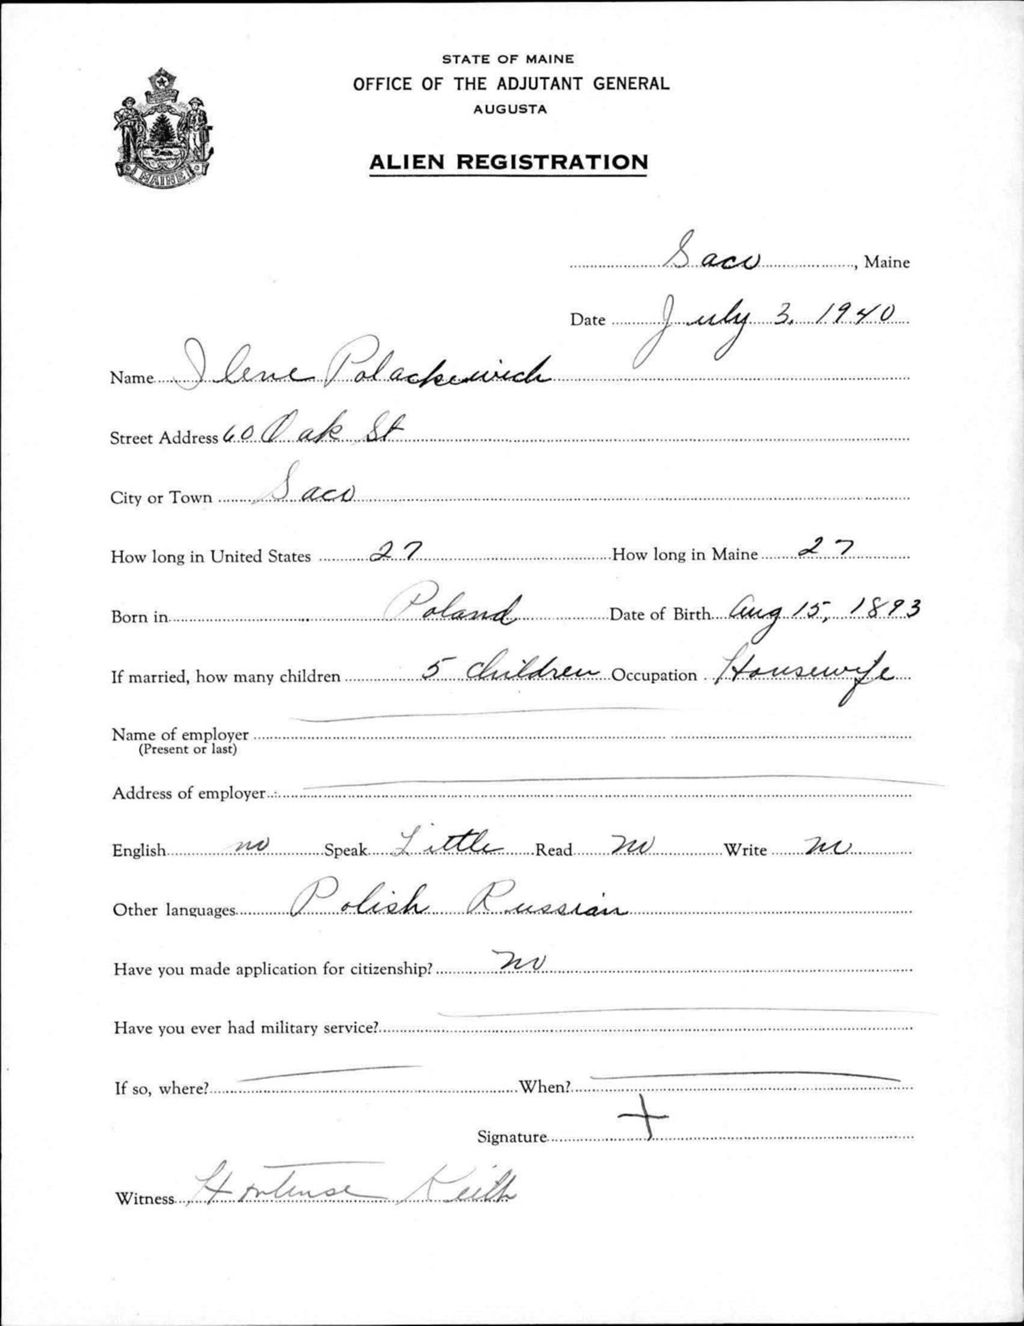 STATE OF MAINE
OFFICE OF THE ADJUTANT GENERAL
AUGUSTA
ALIEN REGISTRATION
MAINE
Saco, Maine
Date July 3, 1940
Name Ilene Polackewich
Street Address 60 Oak St
City or Town Saco
How long in United States 27 How long in Maine 27
Born in Poland Date of Birth Aug 15, 1893
If married, how many children 5 children Occupation Housewife
Name of employer
(Present or last)
Address of employer
English no Speak Little Read No Write No
Other languages Polish Russian
Have you made application for citizenship? No
Have you ever had military service?
If so, where? When?
Signature +
Witness Hortense Keith